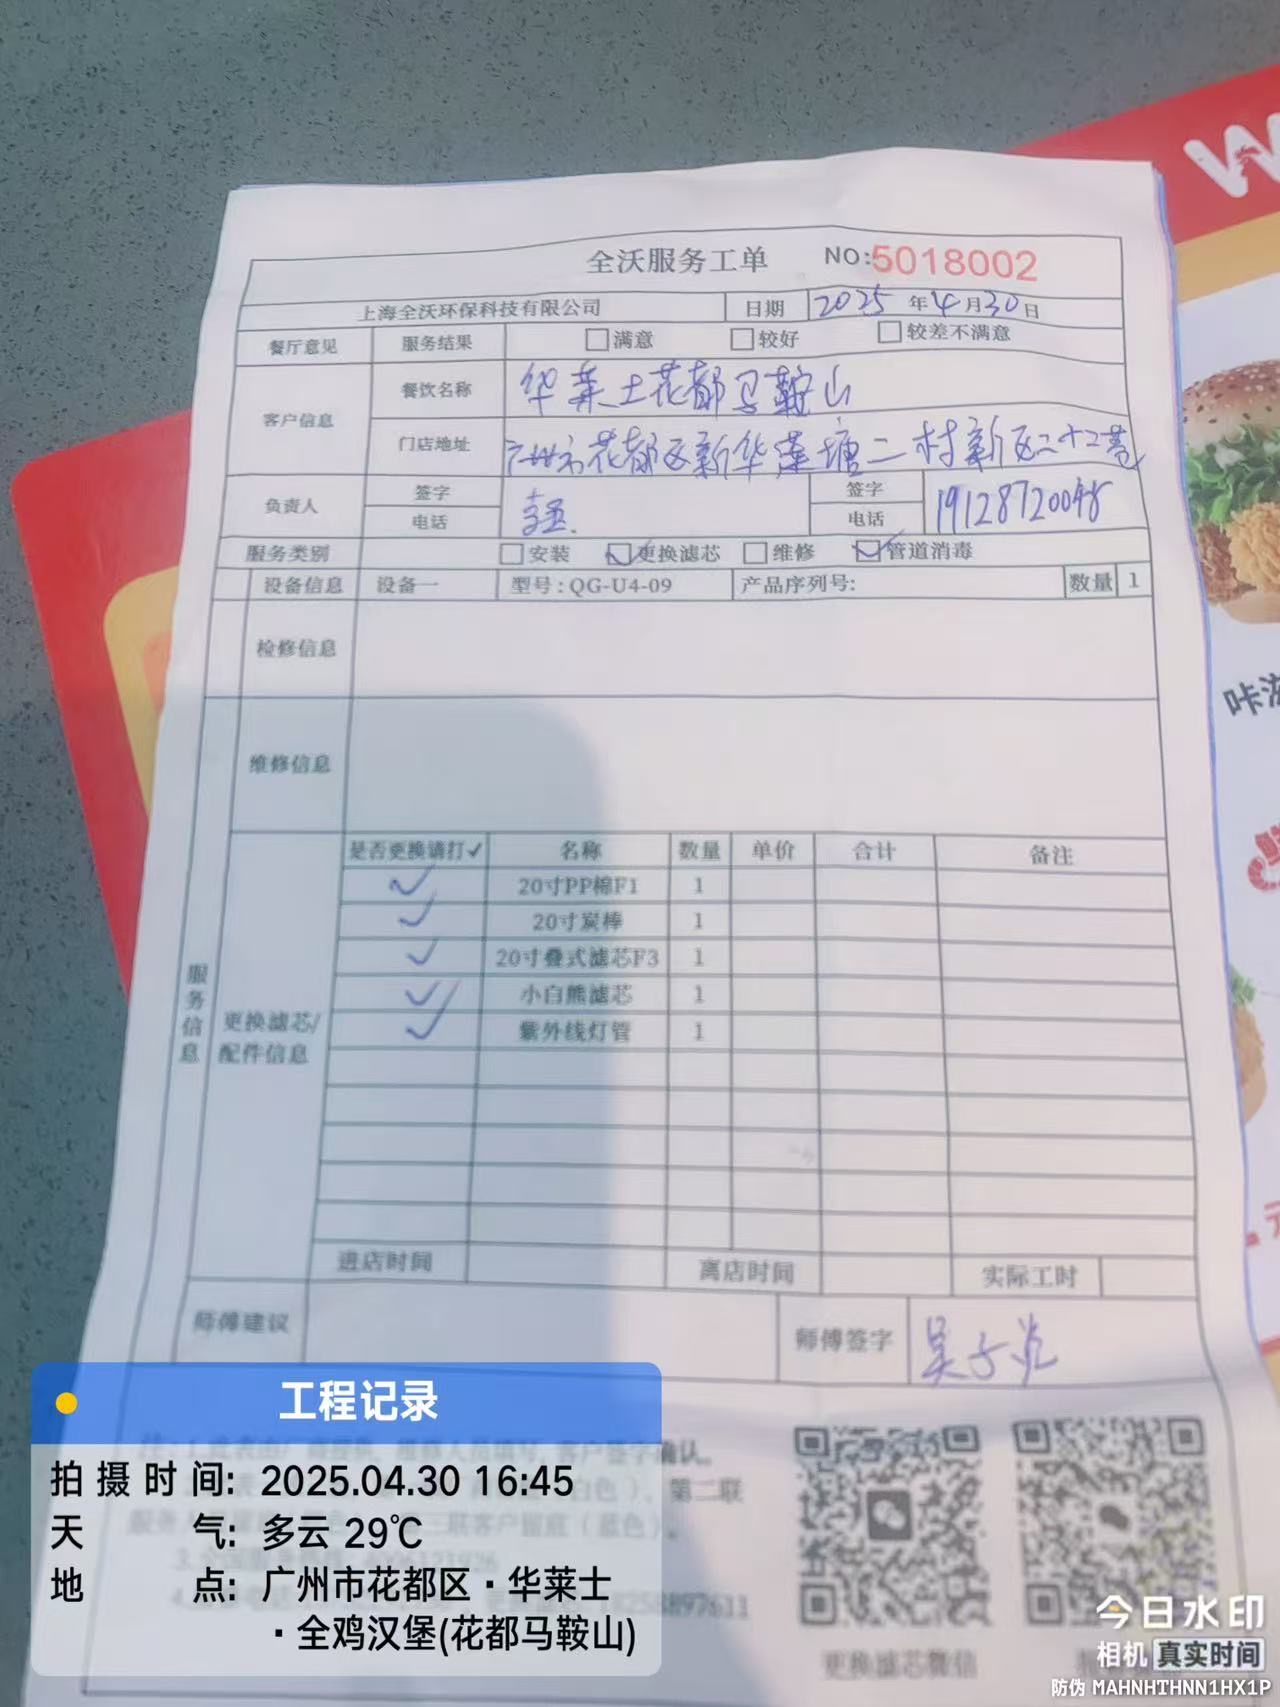 W
全沃服务工单 NO:5018002
上海全沃环保科技有限公司 日期 2025年4月30日
餐厅意见 服务结果 满意 较好 较差不满意
客户信息 餐饮名称 华莱士花都马鞍山
门店地址 广州市花都区新华莲塘二村新区二十二巷
负责人 签字 签字
电话 电话 19128720048
服务类别 安装 更换滤芯 维修 管道消毒
设备信息 设备一 型号:QG-U4-09 产品序列号: 数量 1
检修信息
咔滋
维修信息
服务信息
更换滤芯/配件信息
是否更换请打✓ 名称 数量 单价 合计 备注
✓ 20寸PP棉F1 1
✓ 20寸炭棒 1
✓ 20寸叠式滤芯F3 1
✓ 小白熊滤芯 1
✓ 紫外线灯管 1
元
进店时间 离店时间 实际工时
师傅建议 师傅签字
客户签字确认。
第二联
三联客户留底(蓝色)。
更换滤芯微信
工程记录
拍摄时间: 2025.04.30 16:45
天气: 多云 29℃
地点: 广州市花都区·华莱士
·全鸡汉堡(花都马鞍山)
今日水印
相机 真实时间
防伪 MAHNHTHNN1HX1P